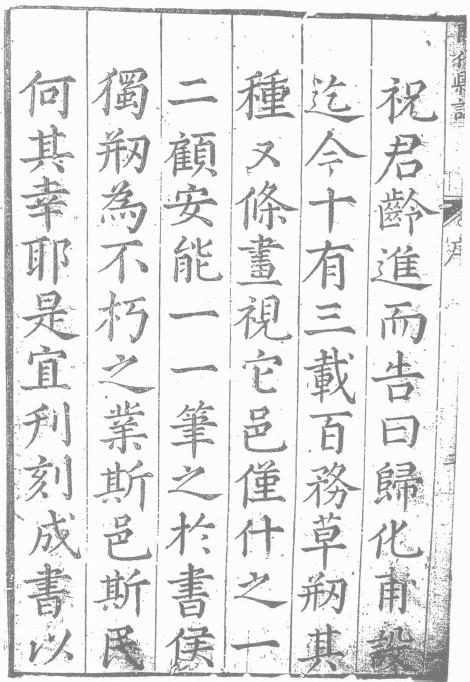 祝君齡進而告曰歸化甫設
迄今十有三載百務草剏其
種又條畫視它邑僅什之一
二顧安能一一筆之於書侯
獨剏為不朽之業斯邑斯民
何其幸耶是宜刋刻成書以